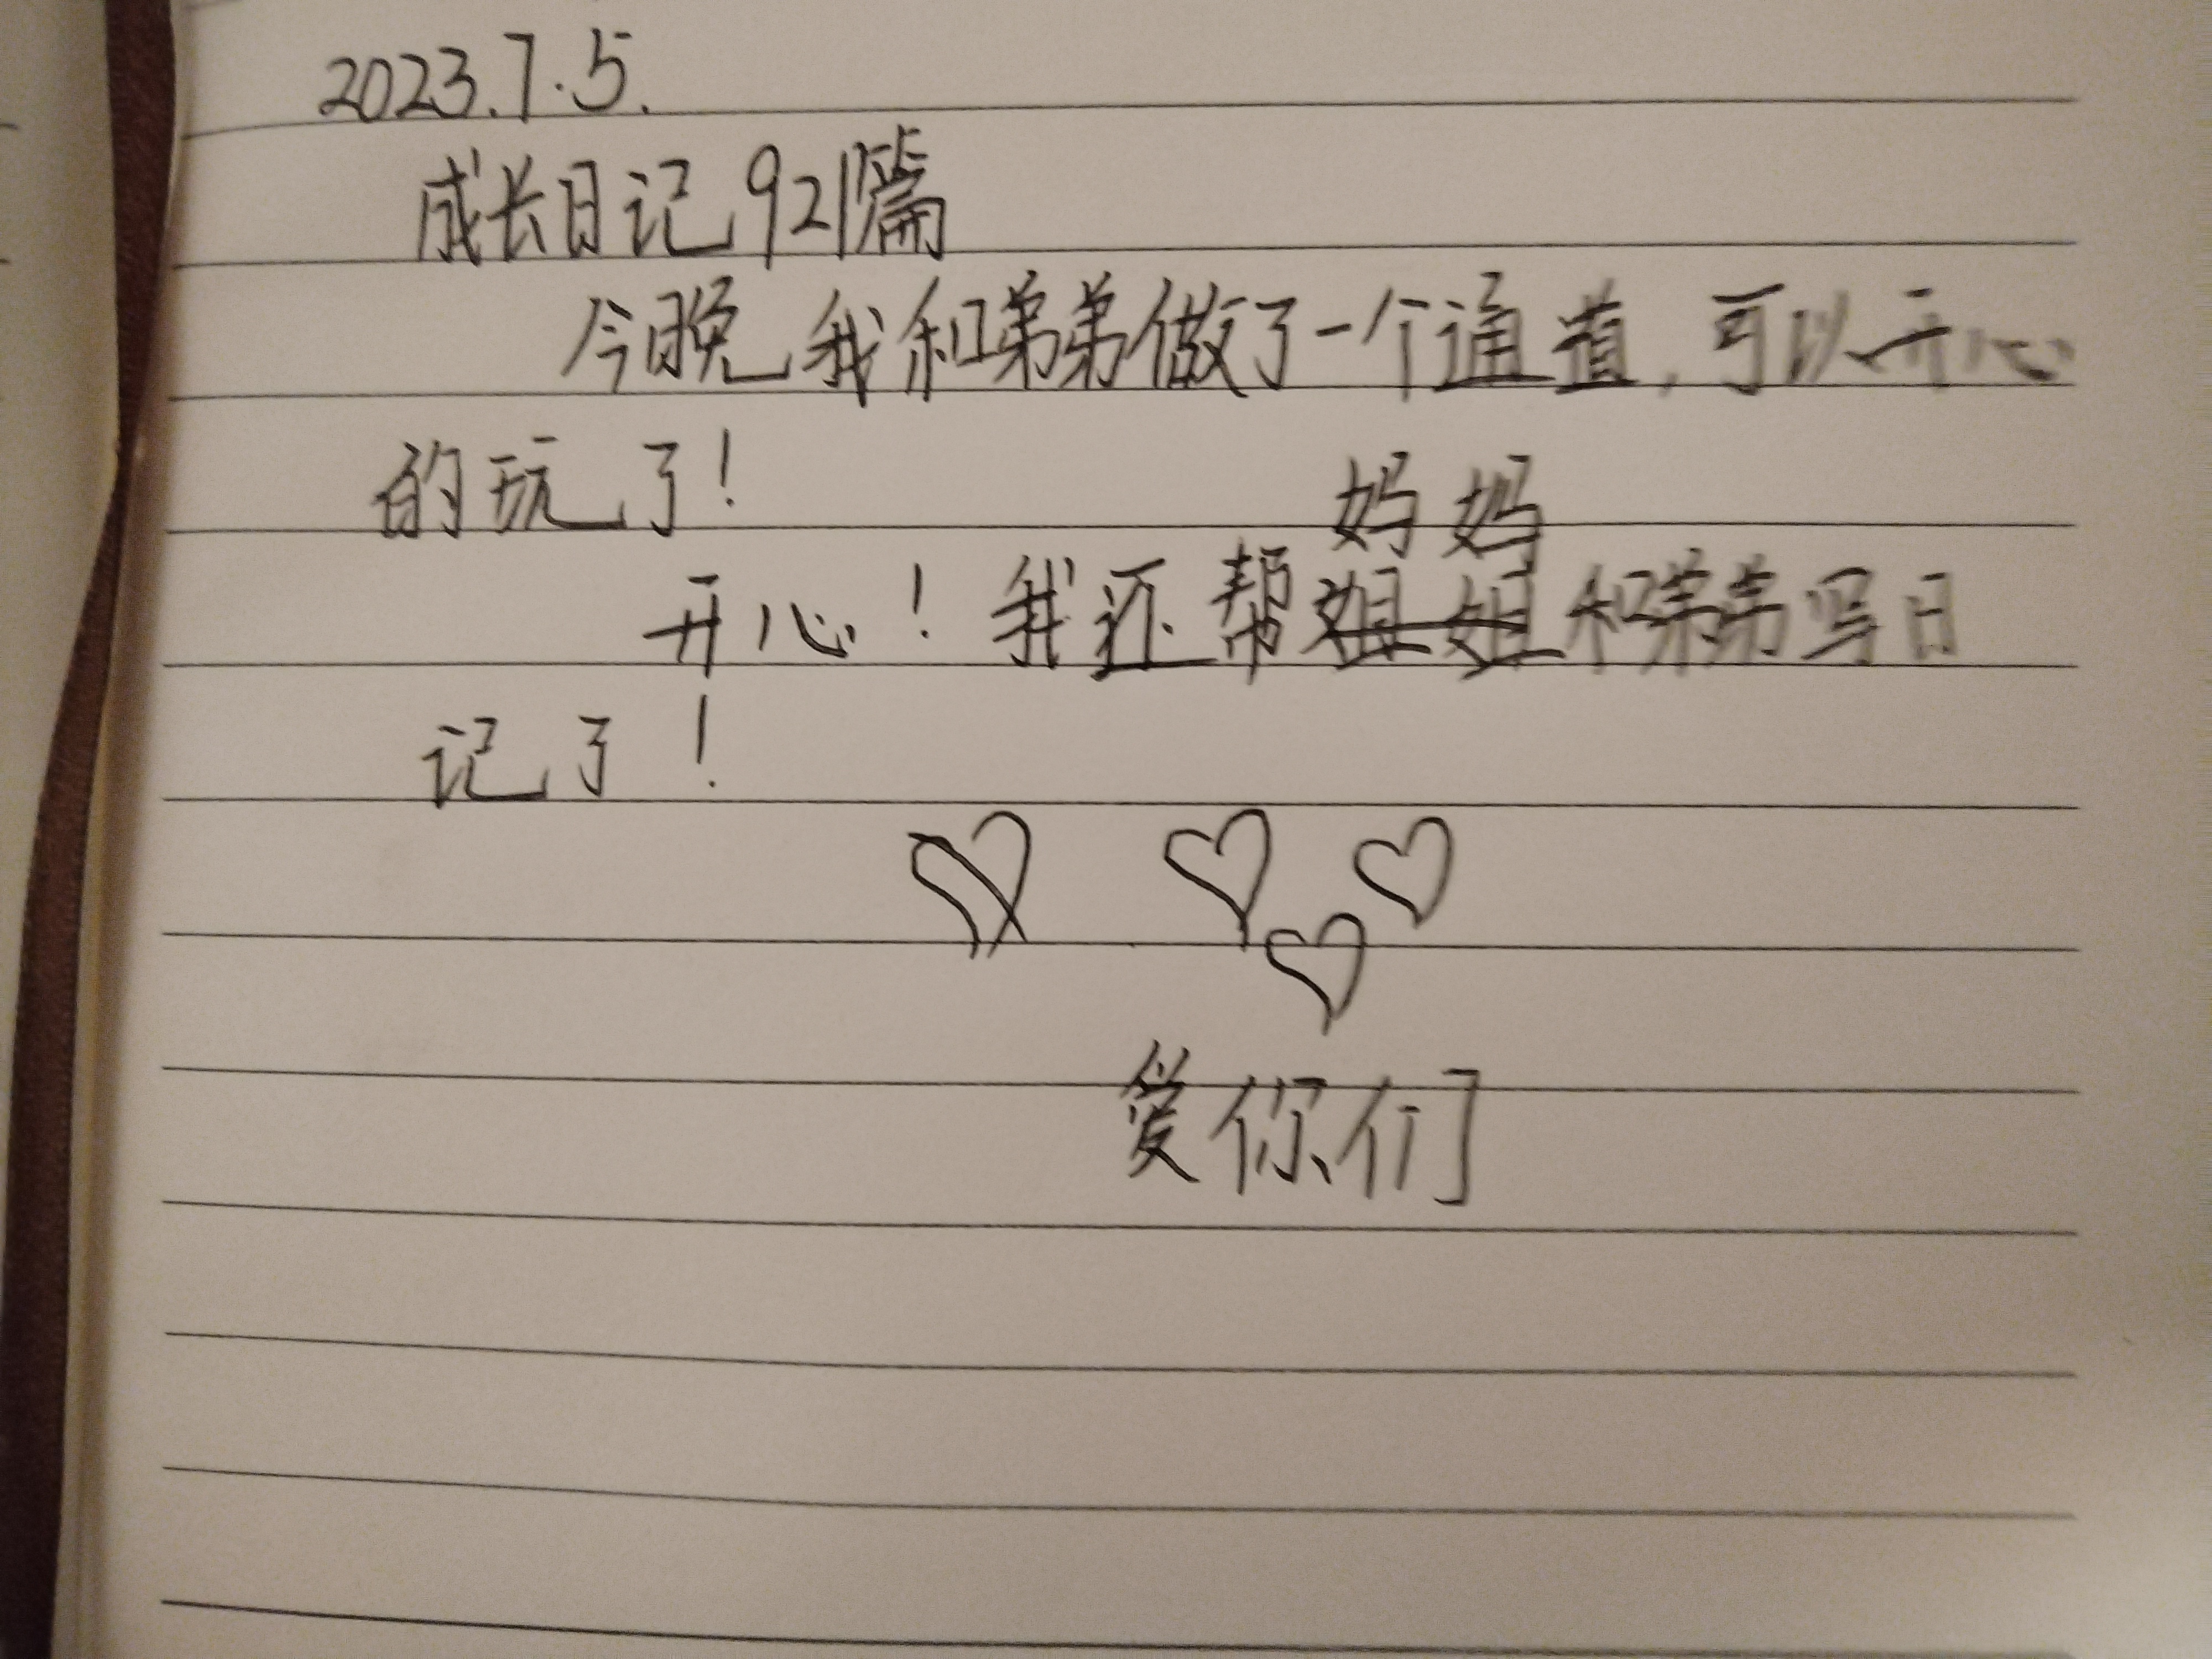 2023.7.5.
成长日记921篇
今晚我和弟弟做了一个通道,可以开心
的玩了!
妈妈
开心!我还帮姐姐和弟弟写日
记了!
爱你们